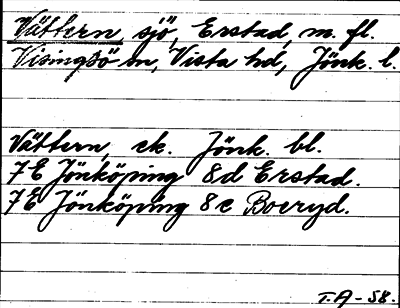 Vättern, sjö, Erstad, m. fl.
Visingsö sn, Vista hd, Jönk. l.
Vättern, ek. Jönk. bl.
7E Jönköping 8d Erstad.
7E Jönköping 8e Boeryd.
T.A-58.